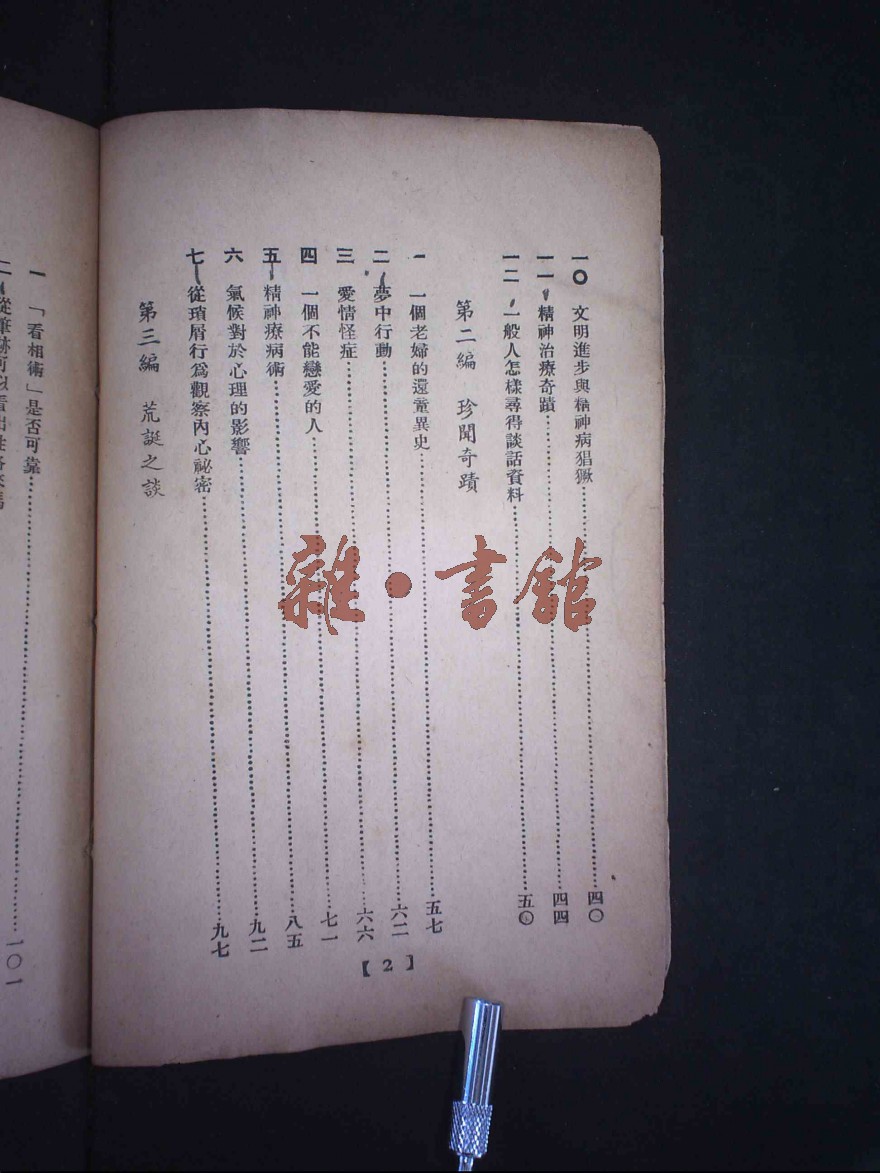 一〇 文明進步與精神病猖獗 四〇
一一 精神治療奇蹟 四四
一二 一般人怎樣尋得談話資料 五〇
第二編 珍聞奇蹟
一 一個老婦的還童異史 五七
二 夢中行動 六二
三 愛情怪症 六六
四 一個不能戀愛的人 七一
五 精神療病術 八五
六 氣候對於心理的影響 九二
七 從瑣屑行為觀察內心祕密 九七
第三編 荒誕之談
【2】
一 「看相術」是否可靠 一〇一
二 從筆跡可以看出性格
雜·書館